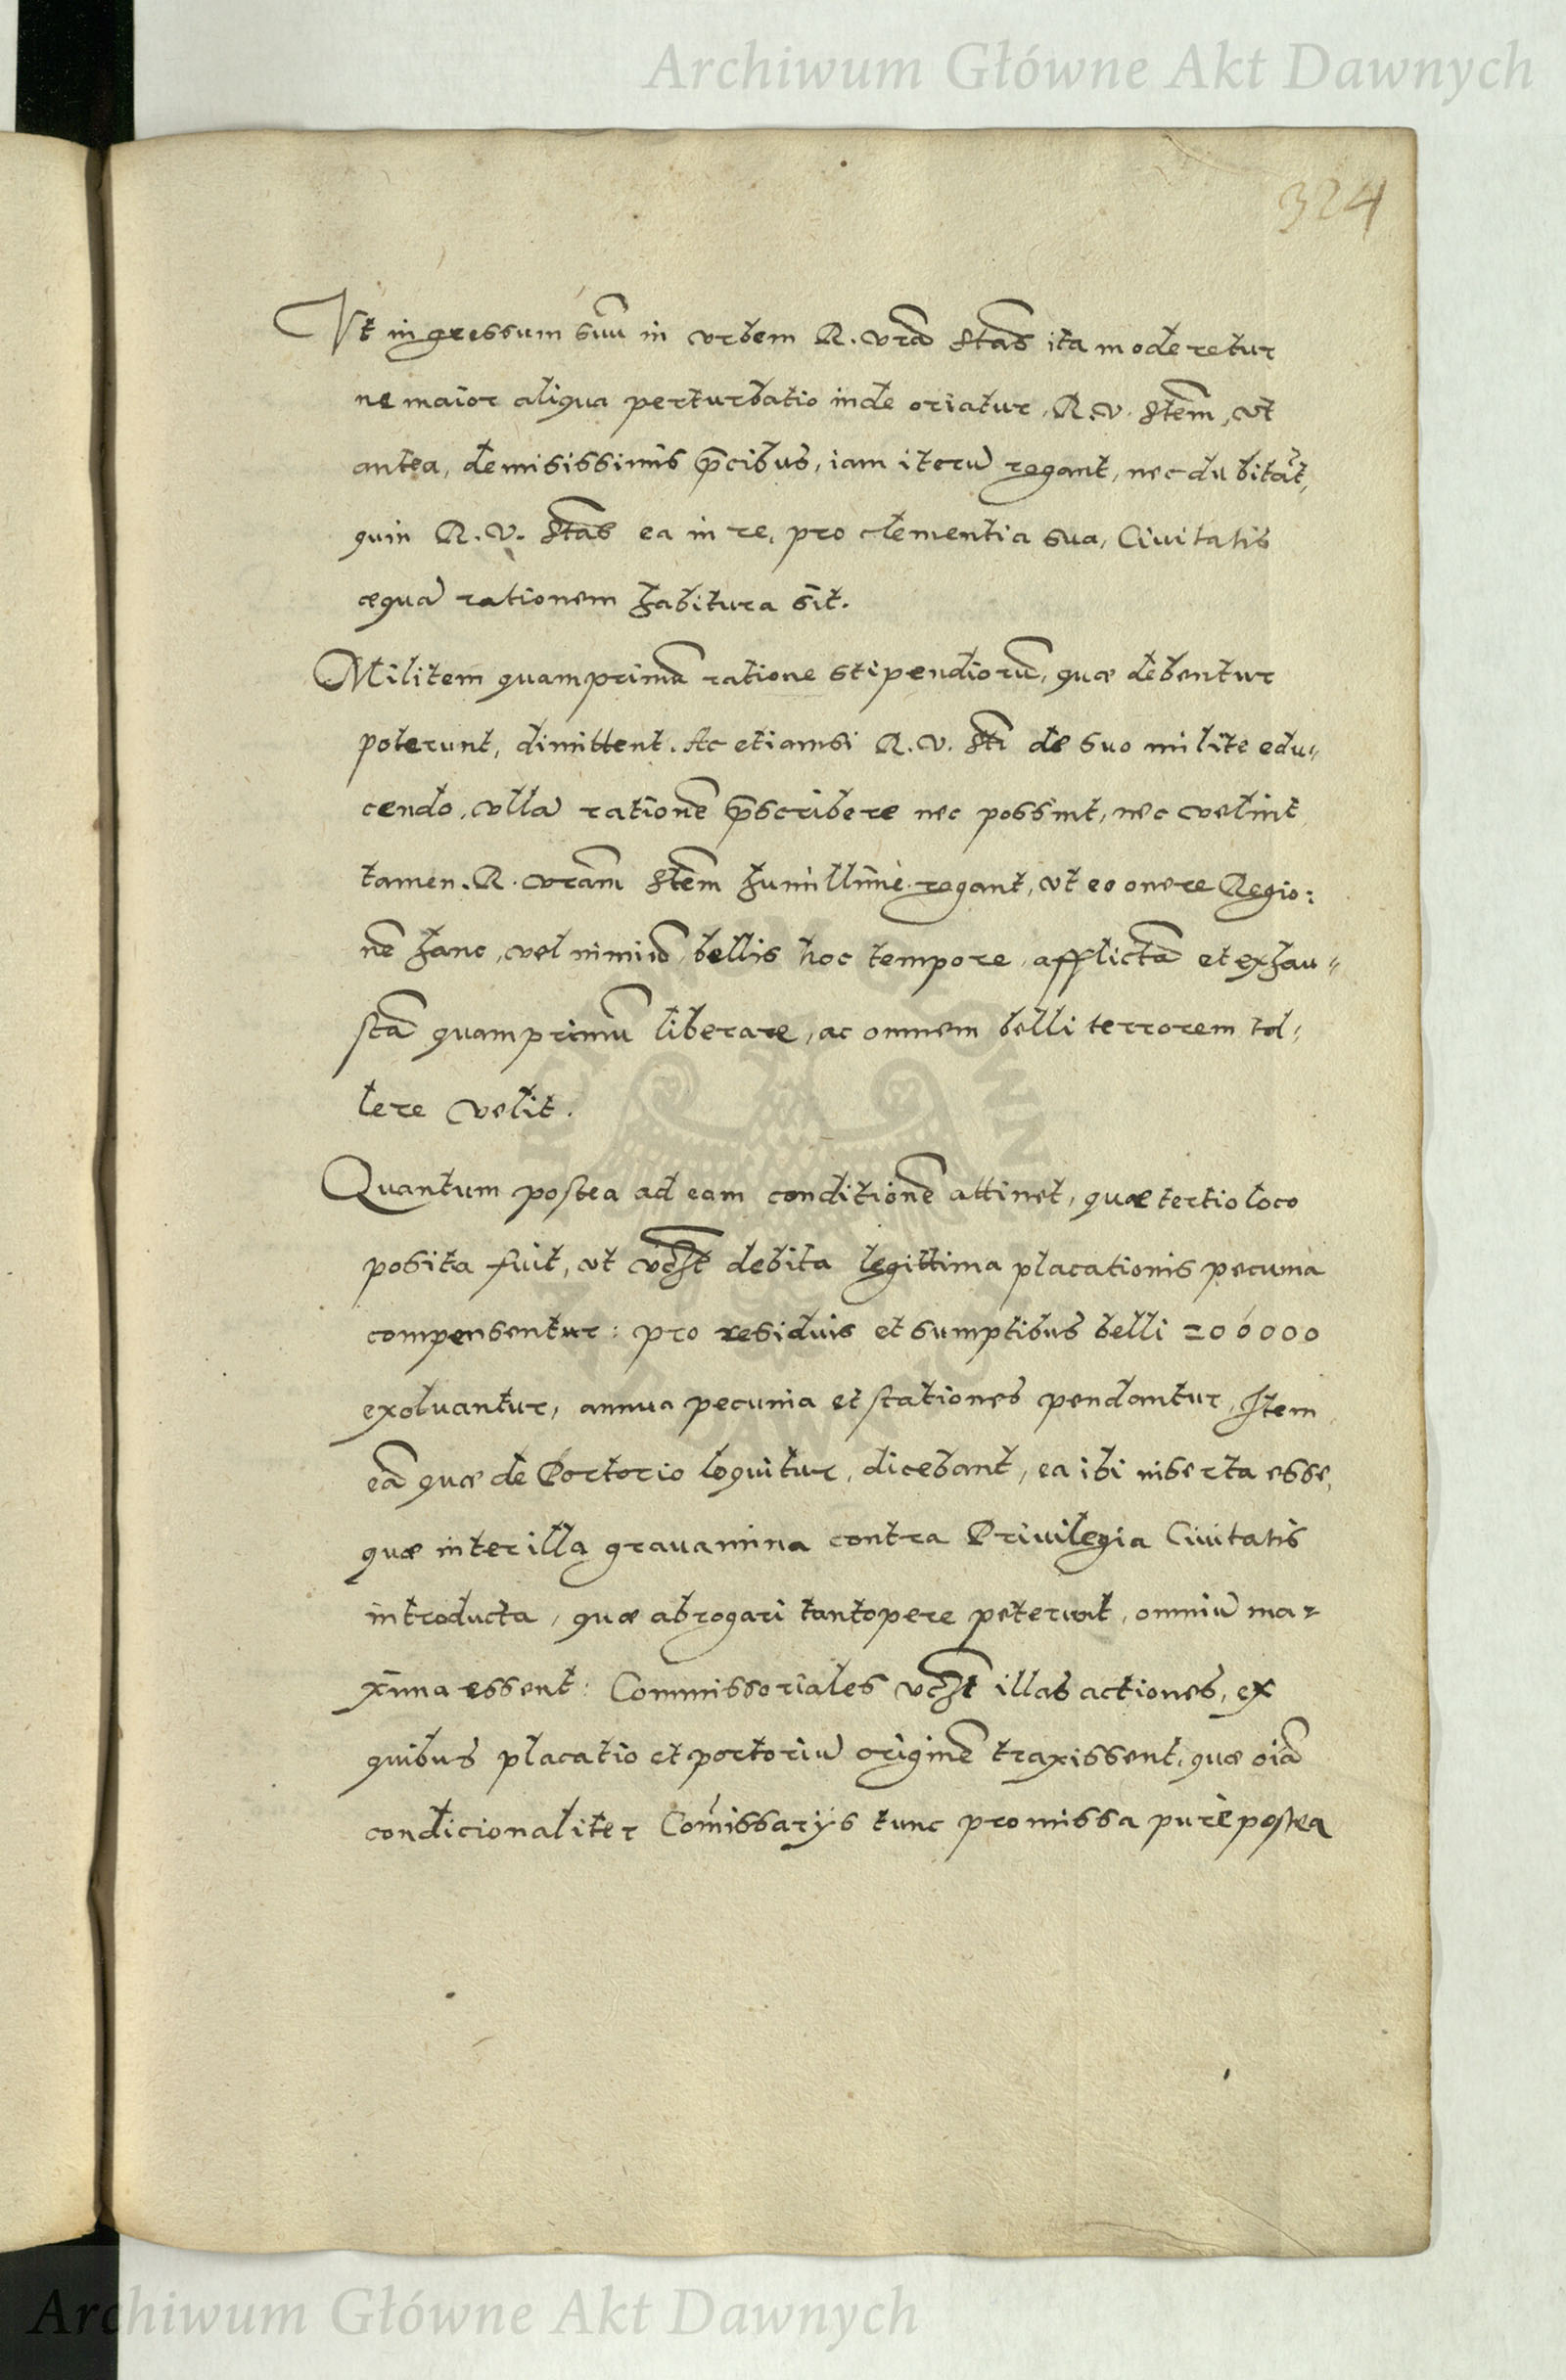 Archiwum Główne Akt Dawnych
324
Vt ingressum suū in vrbem R. vr̃a Stas ita moderetur
ne maior aliqua perturbatio inde oriatur, R. v. Stem, vt
antea, demisissimis p̄cibus, iam iterū rogant, nec dubitāt,
quin R. V. Stas ea in re, pro clementia sua, Ciuitatis
æquā rationem habitura sit.
Militem quamprimū ratione stipendiorū, quæ debentur
poterunt, dimittent. Ac etiamsi R. V. Sti de suo milite edu„
cendo, vllā rationē p̄scribere nec possint, nec velint
tamen R. vram Stem humillimè rogant, vt eo onere Regio:
nē hanc, vel nimiū bellis hoc tempore afflictā et exhau„
stā quamprimū liberare, ac omnem belli terrorem tol„
lere velit.
Quantum postea ad eam conditionē attinet, quæ tertio loco
posita fuit, vt debita legittima placationis pecunia
compensentur: pro residuis et sumptibus belli 200000
exoluantur, annua pecunia et stationes pendantur, Item
eā quæ de Portorio loquitur, dicebant, ea ibi inserta esse,
quæ inter illa grauamina contra Priuilegia Ciuitatis
introducta, quæ abrogari tantopere peterent, omniū ma-
xima essent: Commissoriales illas actiones, ex
quibus placatio et portoriū originē traxissent, quæ oīa
condicionaliter Com̄issarijs tunc promissa purè postea
Archiwum Główne Akt Dawnych